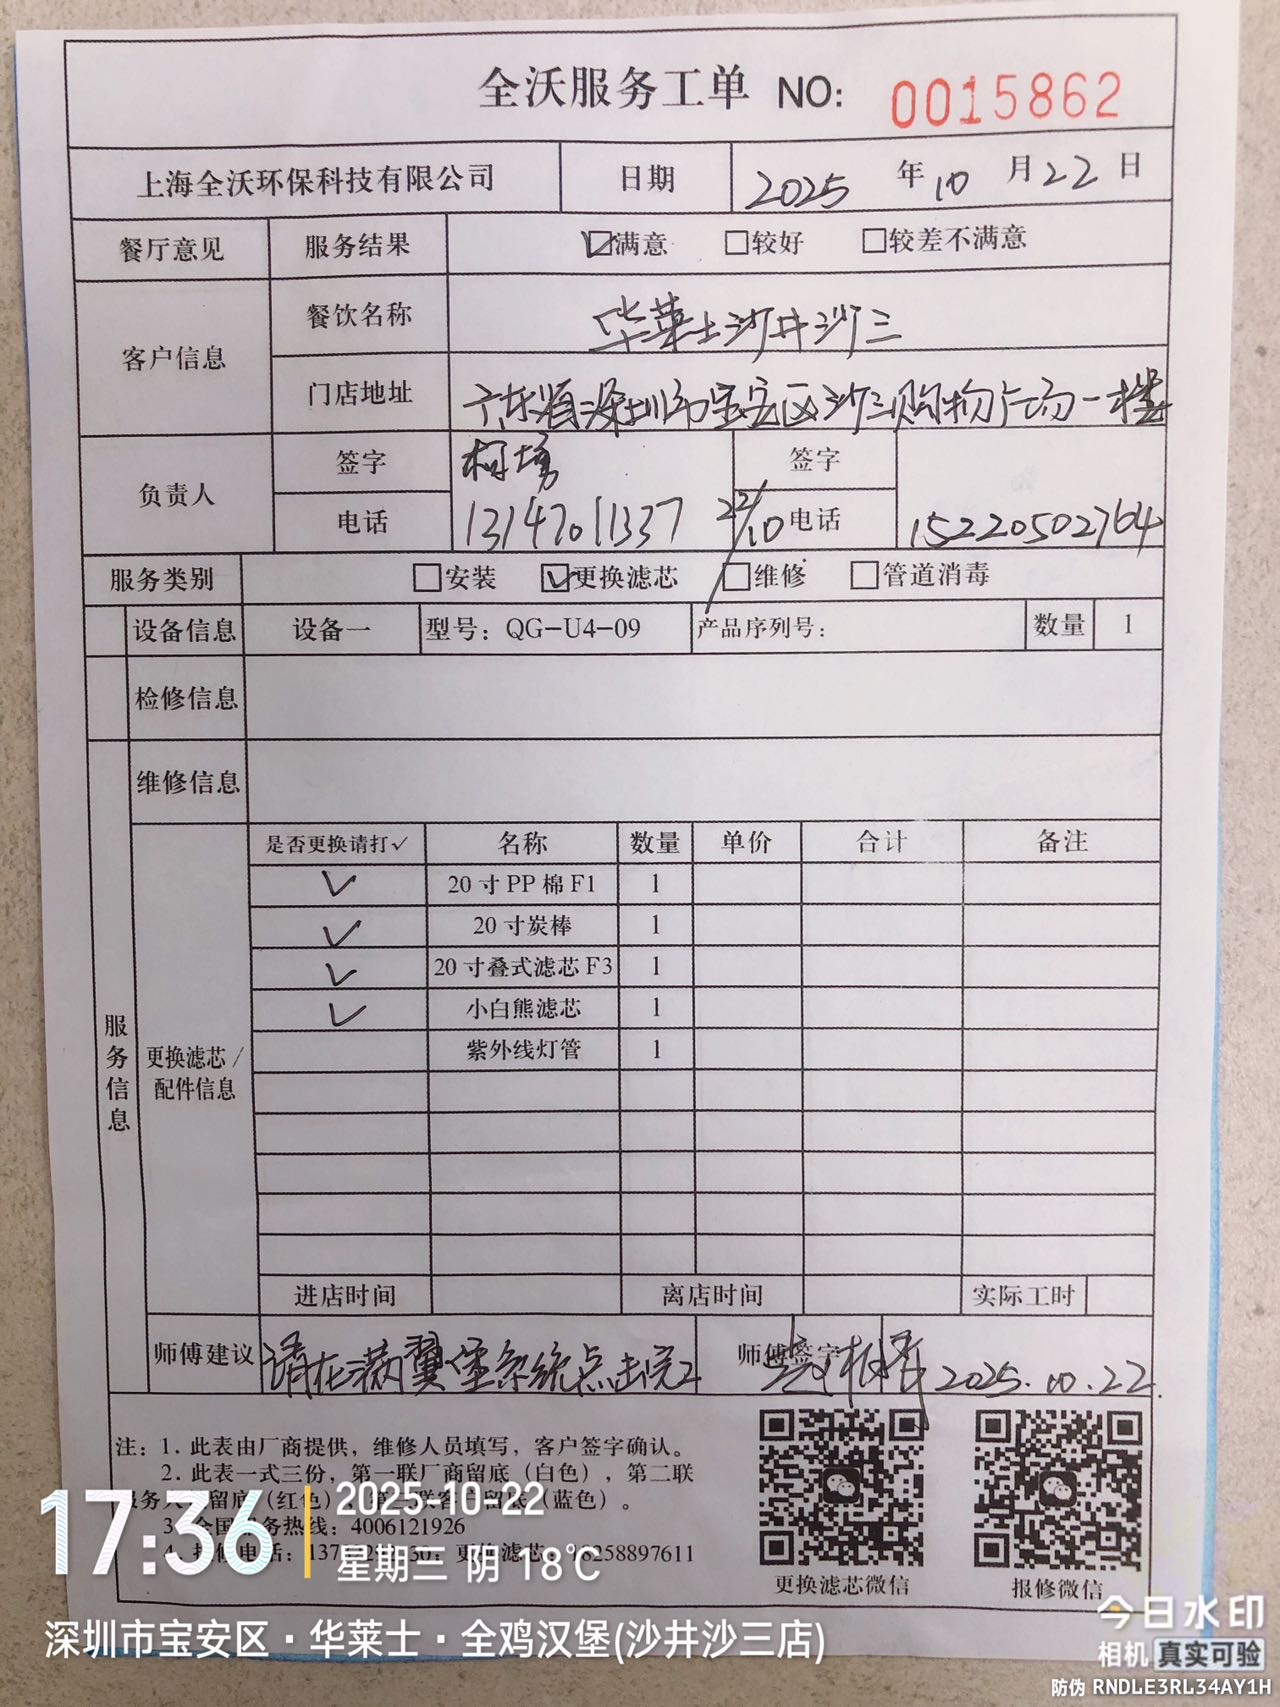 全沃服务工单 NO: 0015862
上海全沃环保科技有限公司 日期 2025 年 10 月 22 日
餐厅意见 服务结果 ☑满意 □较好 □较差不满意
客户信息 餐饮名称 华莱士沙井沙三
门店地址 广东省深圳市宝安区沙三购物广场一楼
负责人 签字 柯 签字
电话 13147011337 22/10 电话 15220502764
服务类别 □安装 ☑更换滤芯 □维修 □管道消毒
设备信息 设备一 型号：QG-U4-09 产品序列号： 数量 1
检修信息
维修信息
服务信息
更换滤芯/配件信息
是否更换请打✓ 名称 数量 单价 合计 备注
✓ 20寸PP棉F1 1
✓ 20寸炭棒 1
✓ 20寸叠式滤芯F3 1
✓ 小白熊滤芯 1
紫外线灯管 1
进店时间 离店时间 实际工时
师傅建议 请在满翼堡系统点击完工 师傅签字 2025.10.22.
注：1. 此表由厂商提供，维修人员填写，客户签字确认。
2. 此表一式三份，第一联厂商留底（白色），第二联
服务人 留底（红色） 联客户留底（蓝色）。
3. 全国服务热线：4006121926
4. 报修电话：137 30；更换滤芯 8258897611
更换滤芯微信 报修微信
17:36 2025-10-22
星期三 阴 18℃
深圳市宝安区·华莱士·全鸡汉堡(沙井沙三店)
今日水印
相机 真实可验
防伪 RNDLE3RL34AY1H